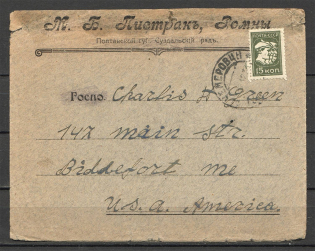 М. Б. Пистракъ, Ромны
Полтавской губ.
ПОЧТА СССР
15 КОП.
Роспо. Charlie H. Green
147 main str.
Biddefort me
U.S. America.